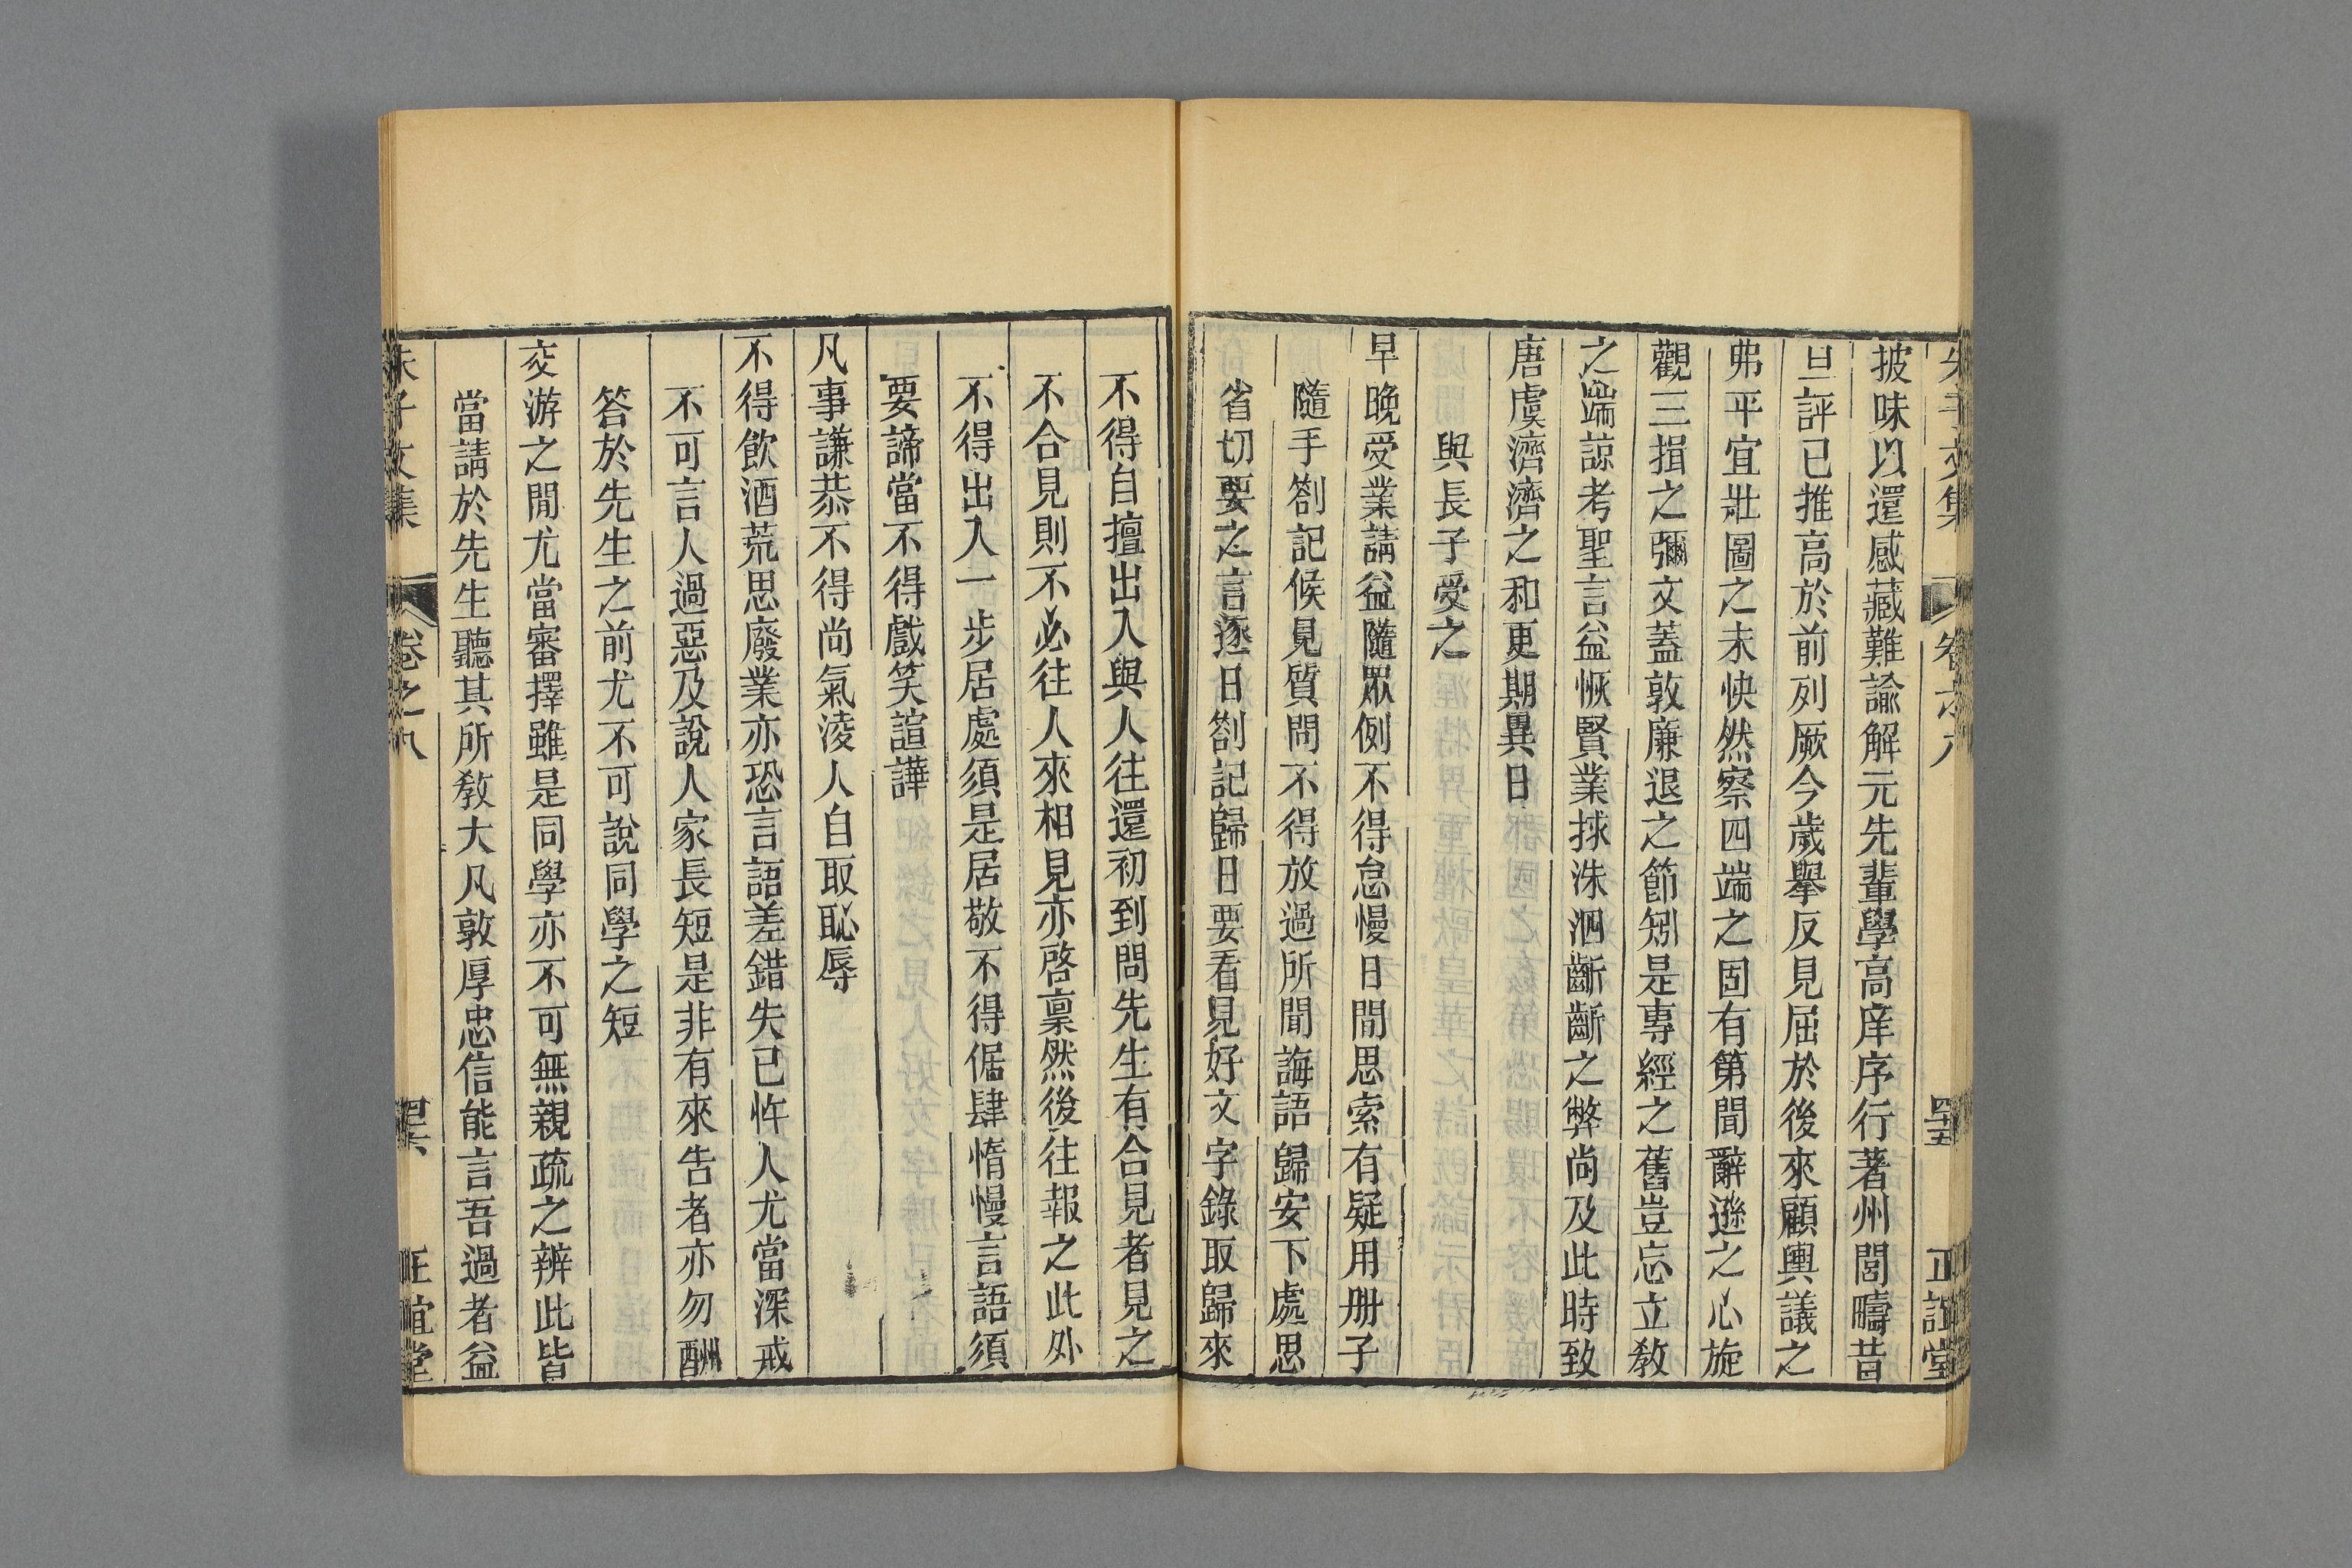 朱子文集 卷之八 罜 正誼堂
披味以還感藏難諭解元先輩學高庠序行著州閭疇昔
旦評已推高於前列厥今歲舉反見屈於後來顧輿議之
弗平宜壯圖之未怏然察四端之固有第聞辭遜之心旋
觀三揖之彌文蓋敦廉退之節矧是專經之舊豈忘立教
之端諒考聖言益恢賢業捄洙泗齗齗之弊尚及此時致
唐虞濟濟之和更期異日
與長子受之
早晚受業請益隨眾例不得怠慢日間思索有疑用册子
隨手劄記候見質問不得放過所聞誨語歸安下處思
省切要之言逐日劄記歸日要看見好文字錄取歸來
不得自擅出入與人往還初到問先生有合見者見之
不合見則不必往人來相見亦啓稟然後往報之此外
不得出入一步居處須是居敬不得倨肆惰慢言語須
要諦當不得戲笑諠譁
凡事謙恭不得尚氣淩人自取恥辱
不得飲酒荒思廢業亦恐言語差錯失已忤人尤當深戒
不可言人過惡及說人家長短是非有來告者亦勿酬
答於先生之前尤不可說同學之短
交游之間尤當審擇雖是同學亦不可無親疏之辨此皆
當請於先生聽其所教大凡敦厚忠信能言吾過者益
朱子文集 卷之八 正誼堂